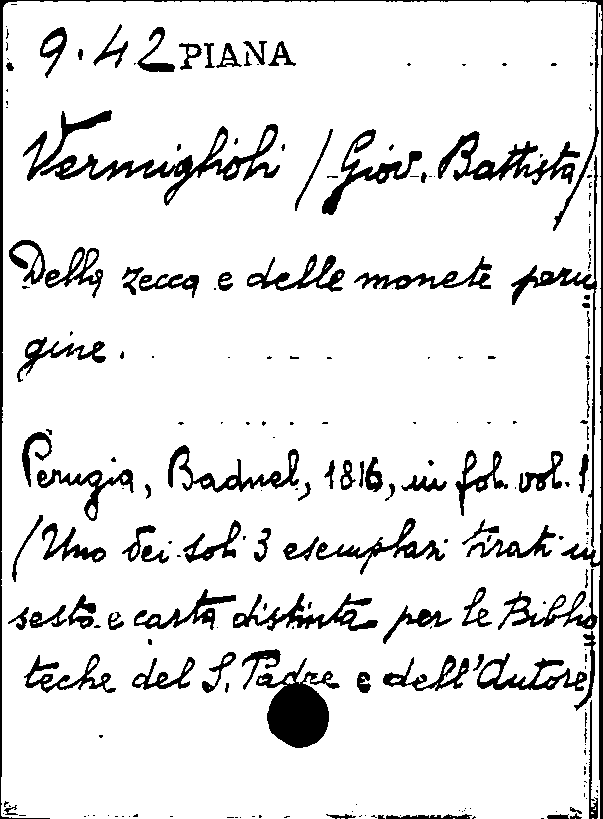 9.42 PIANA
Vermiglioli (Giov. Battista)
Della zecca e delle monete peru
gine.
Perugia, Baduel, 1816, in fol. vol. 1.
(Uno dei soli 3 esemplari tirati in
sesto e carta distinta per le Biblio
teche del S. Padre e dell'Autore)